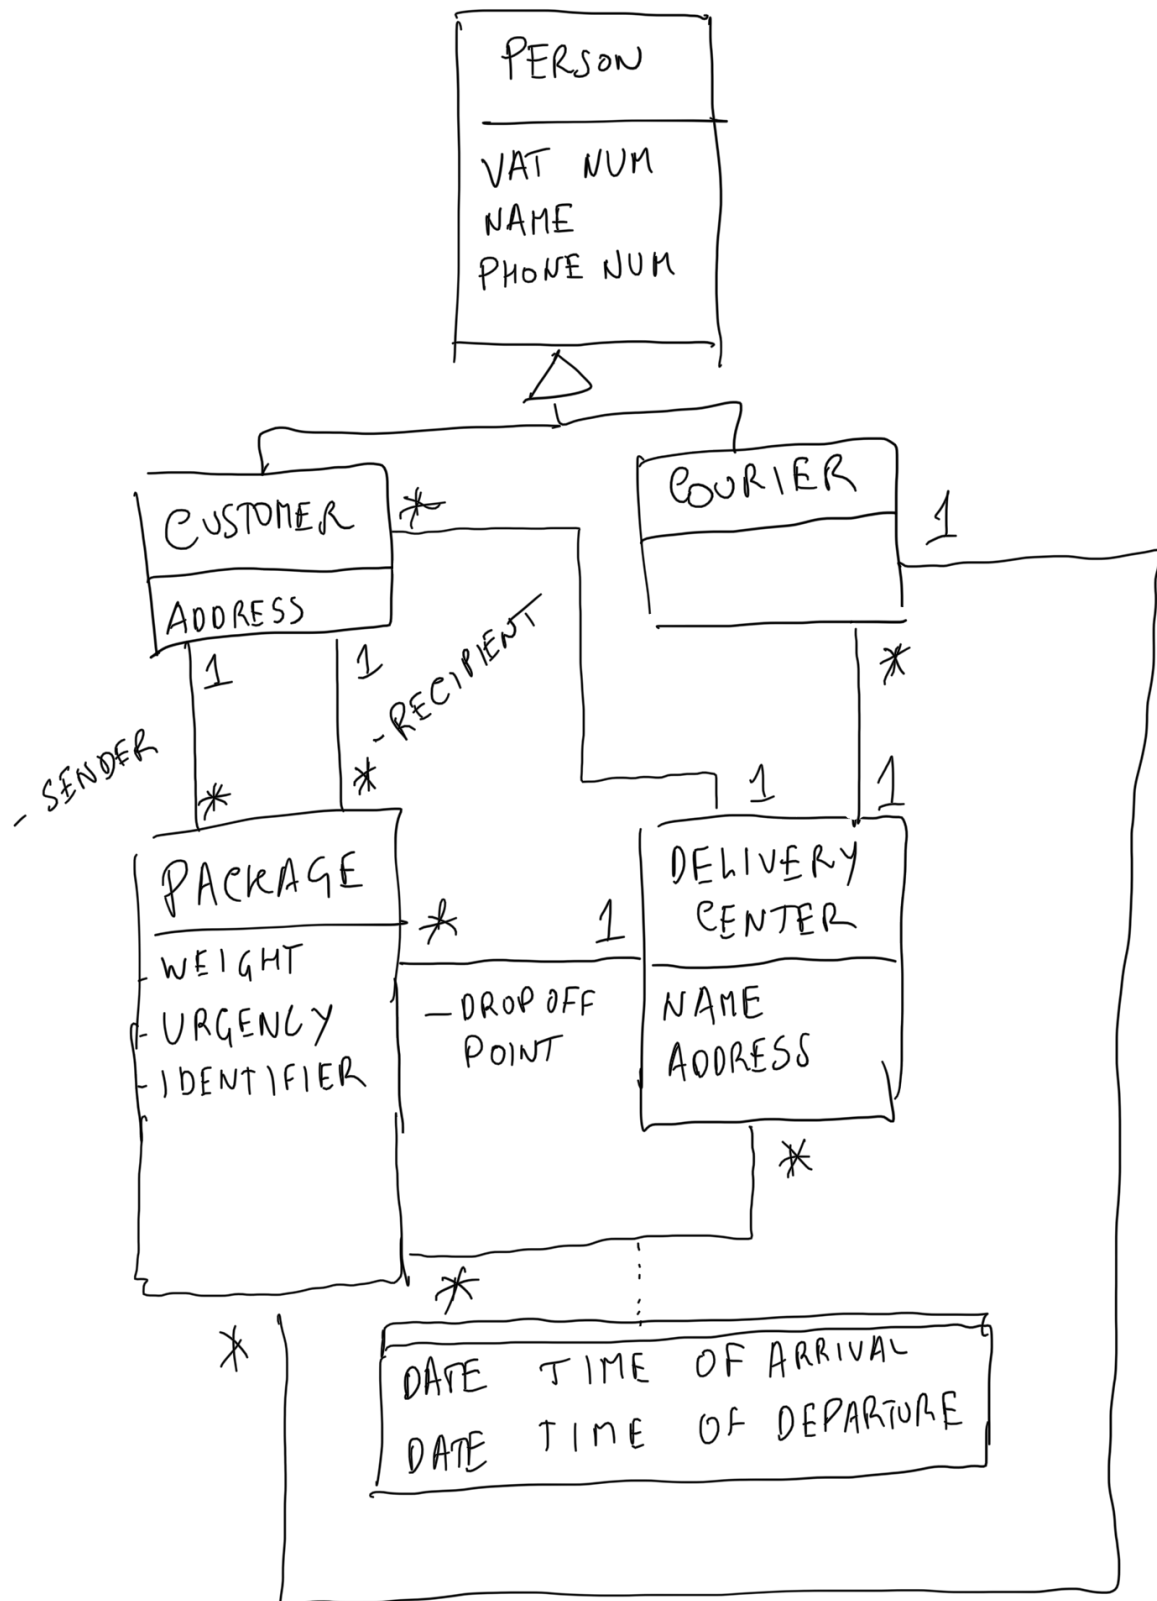 PERSON
VAT NUM
NAME
PHONE NUM
CUSTOMER
*
ADDRESS
COURIER
1
1
1
- RECIPIENT
*
- SENDER
*
*
1
1
PACKAGE
- WEIGHT
- URGENCY
- IDENTIFIER
*
1
- DROP OFF
POINT
DELIVERY
CENTER
NAME
ADDRESS
*
*
*
DATE TIME OF ARRIVAL
DATE TIME OF DEPARTURE